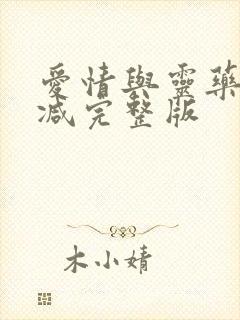 愛情與靈藥
减完整版
木小婧